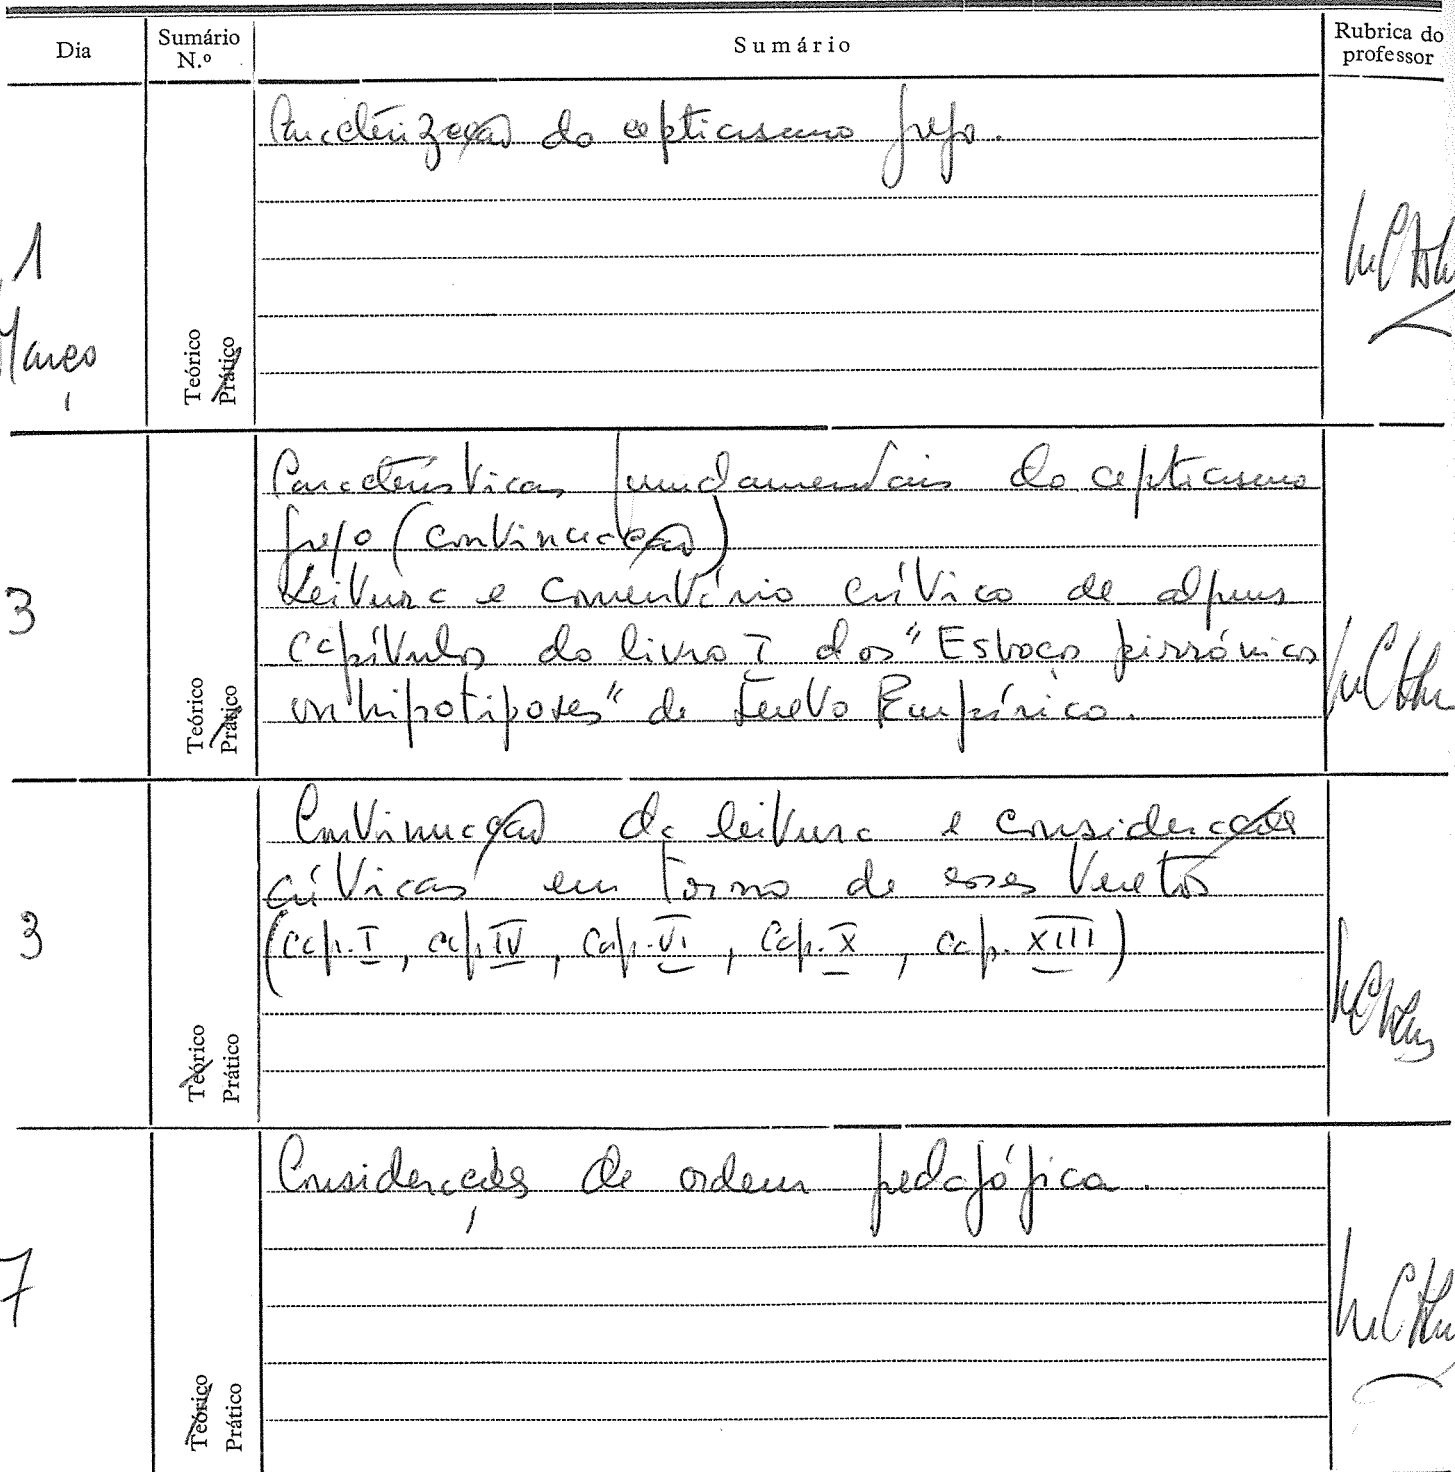 Dia
Sumário N.º
Sumário
Rubrica do professor
1 Março
Teórico
Prático
Caracterização do cepticismo grego.
3
Teórico
Prático
Características fundamentais do cepticismo
grego (continuação)
Leitura e comentário crítico de alguns
capítulos do livro I dos "Esboços pirrónicos
ou hipotiposes" de Sexto Empírico.
3
Teórico
Prático
Continuação da leitura e considerações
críticas em torno de esses textos
(cap. I, cap. IV, cap. VI, cap. X, cap. XIII)
7
Teórico
Prático
Considerações de ordem pedagógica.